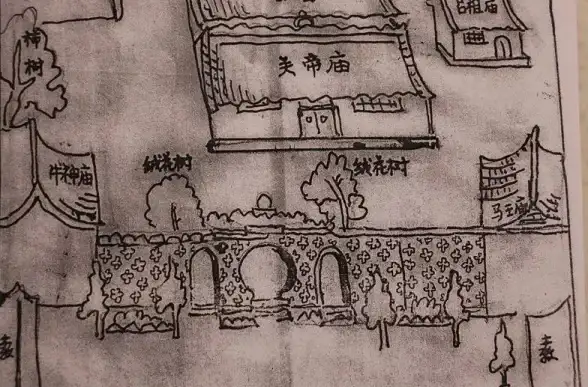 吕祖庙
柿树
关帝庙
绒花树
绒花树
牛神庙
马王庙